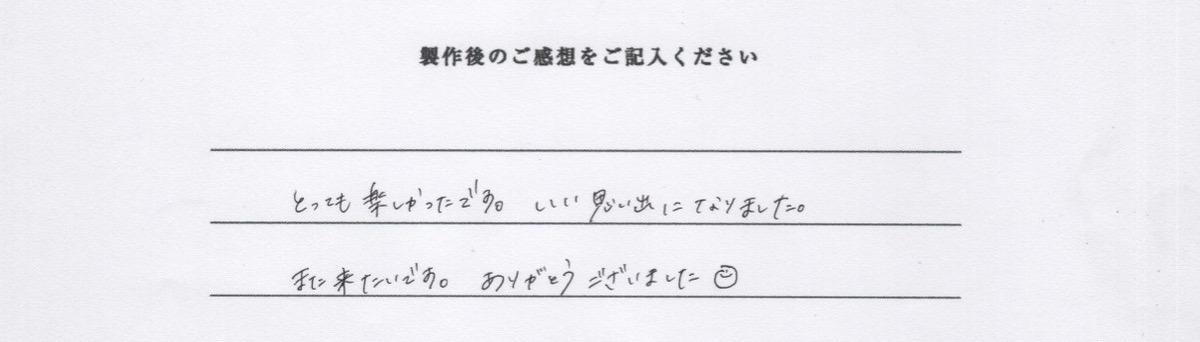 製作後のご感想をご記入ください
とっても楽しかったです。 いい思い出になりました。
また来たいです。 ありがとうございました☺